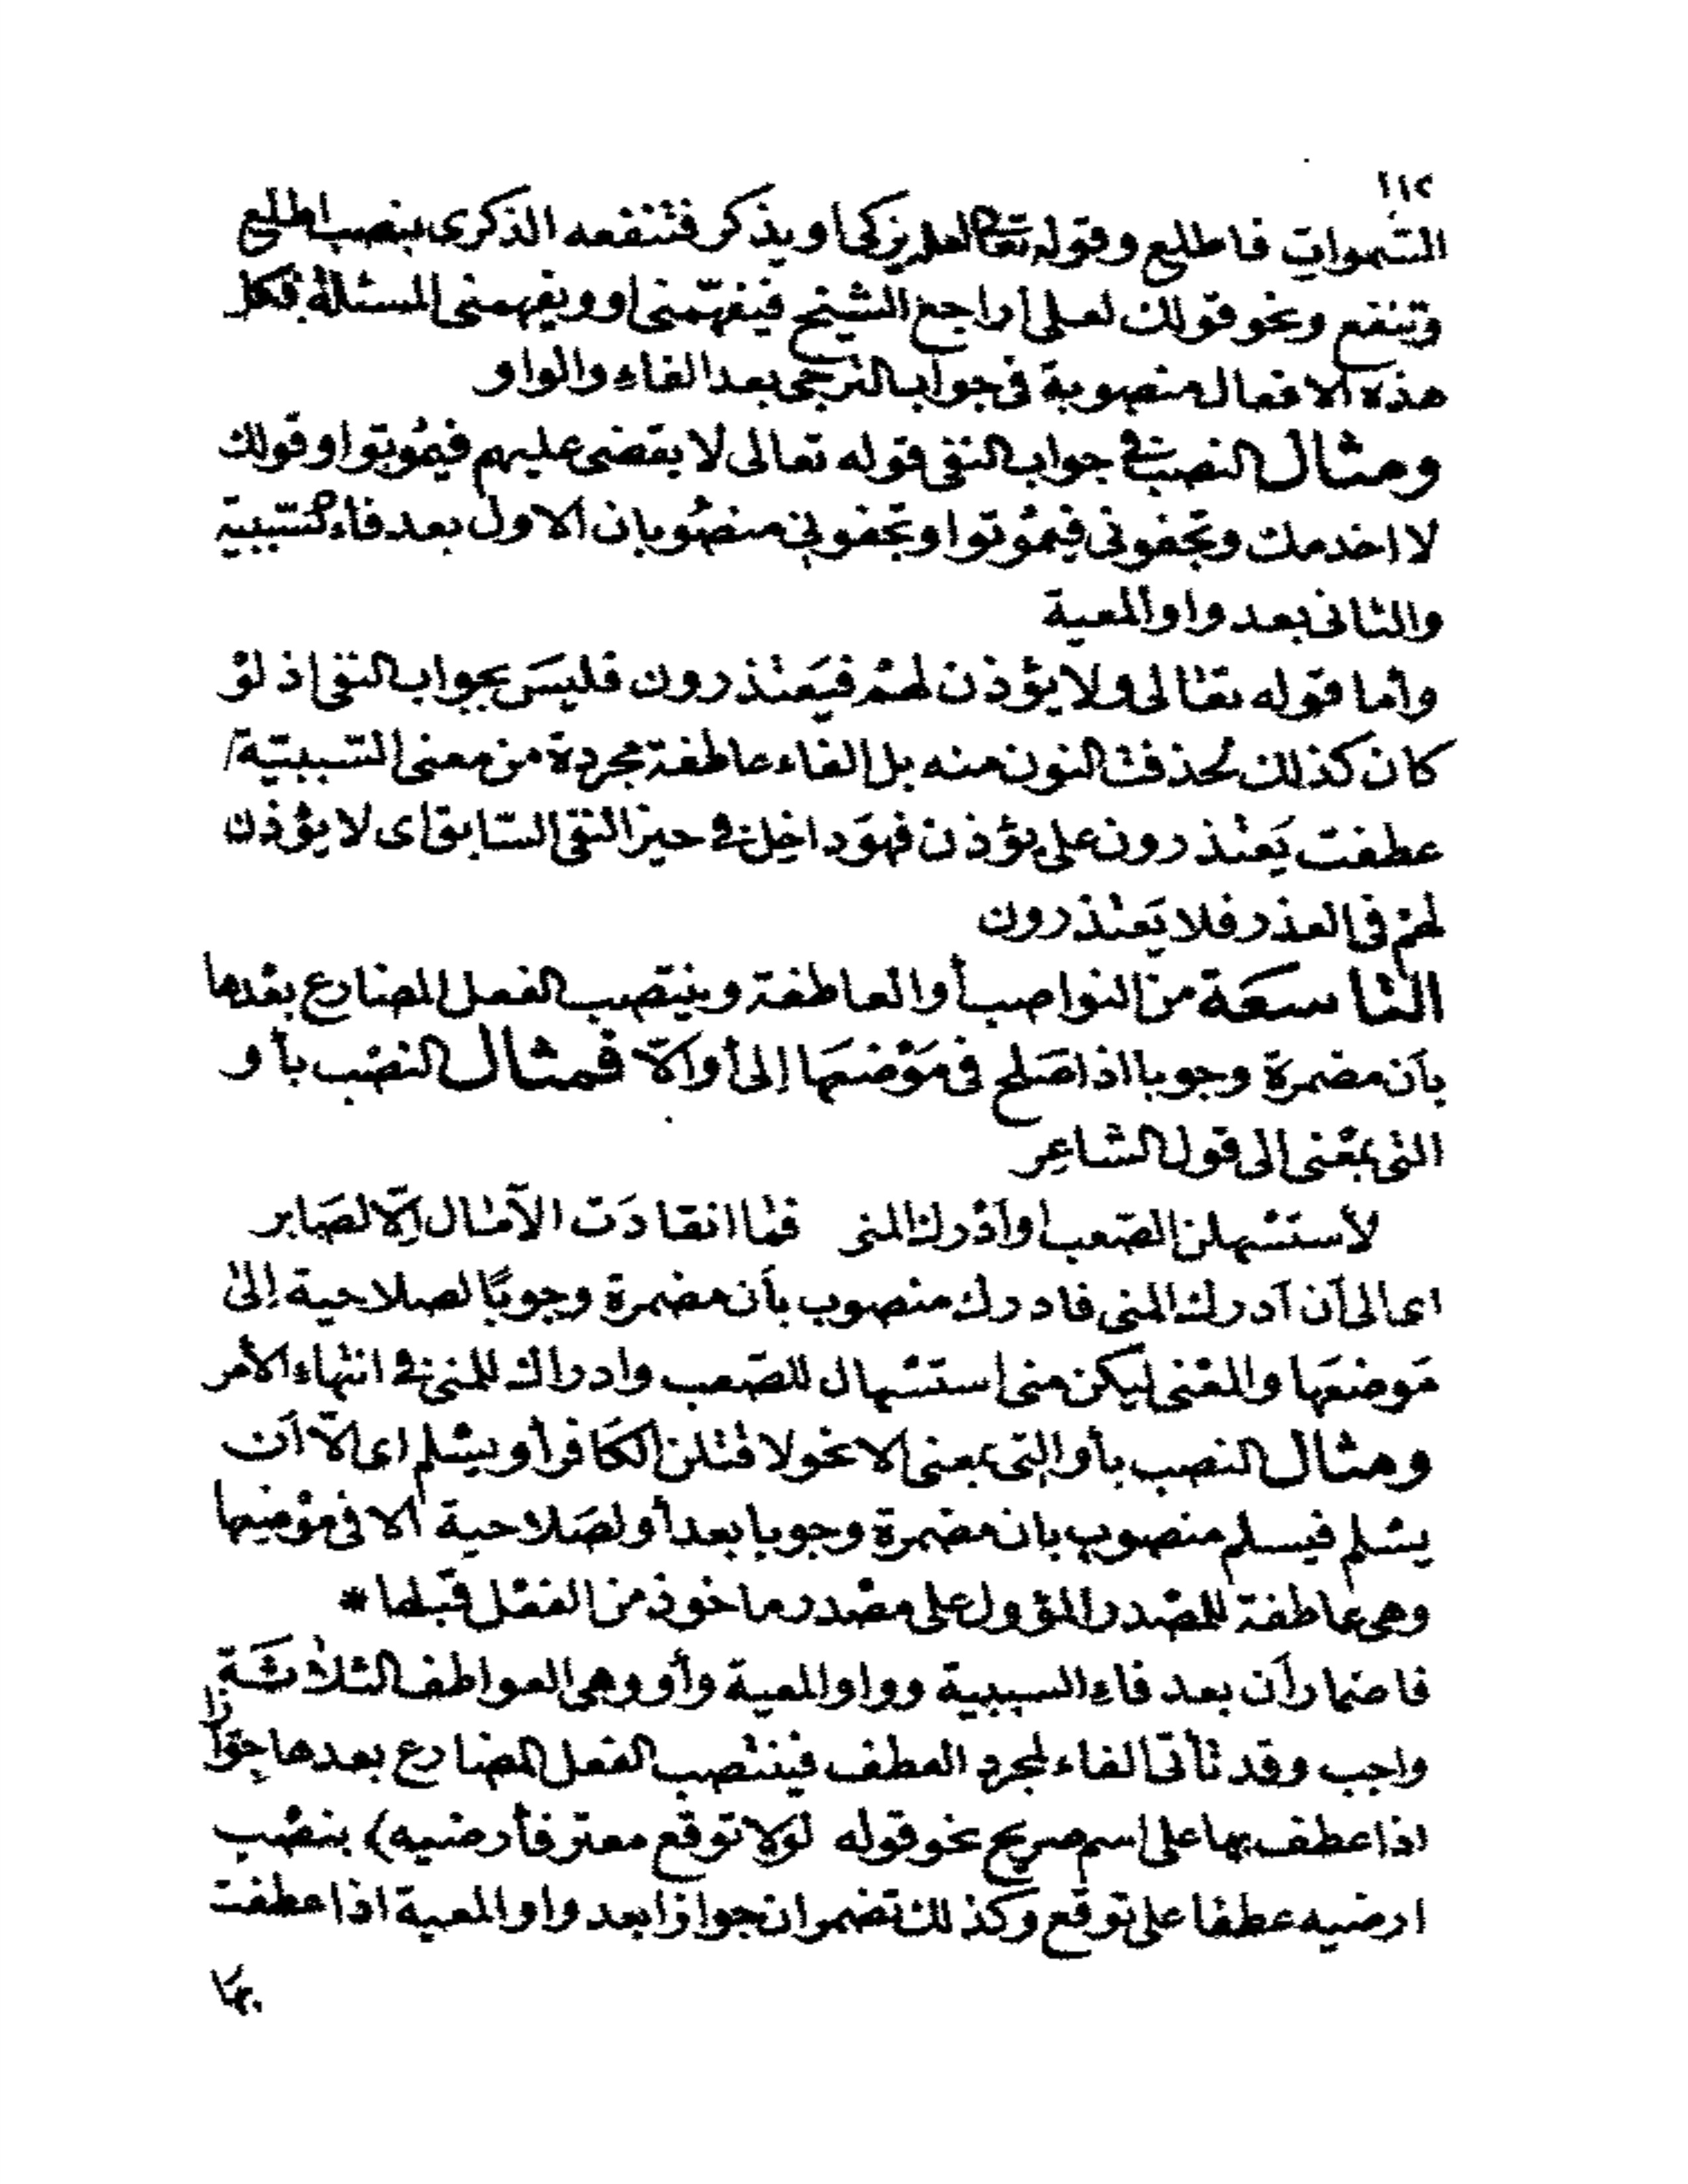 ١١٢
السّموات فاطلع وقوله تعالى لعله يزكى اويذكر فتنفعه الذكرى بنصب اطلع
وتنفع ونحو قولك لعلى أراجع الشيخ فيفهّمنى او ويفهمنى المسئلة فكل
هذه الافعال منصوبة فى جواب الترجى بعد الفاء والواو
ومثال النصب فى جواب النفى قوله تعالى لا يقضى عليهم فيمُوتوا وقولك
لا اخدمك وتجفونى فيمُوتوا وتجفونى منصُوبان الاول بعد فاء السّببية
والثانى بعد واو المعية
وأما قوله تعالى ولا يؤذن لهم فيَعتذرون فليسَ بجواب النفى اذ لوْ
كان كذلك لحذفت النون منه بل الفاء عاطفة مجردة من معنى السّببيّة
عطفت يَعتذرون على يؤذن فهوَ داخِل فى حيز النفى السّابق اى لا يؤذن
لهمْ فى العذر فلا يَعتذرون
التاسعَة من النواصب أو العاطفة وينتصب الفعل المضارع بعْدها
بأن مضمرة وجوبا اذا صَلح فى مَوْضعهَا إلى أو الّا فمثال النصْب بأو
التى بمعْنى الى قول الشاعِر
لأستسْهلن الصّعب او أدْرك المنى فما انقادَت الآمال إلّا لصَابر
اى الى أن أدرك المنى فادرك منصوب بأن مضمرة وجوبًا لصلاحية إلى
مَوضعهَا والمعْنى ليكن منى استسْهال للصّعب وادراك للمنى فى انتهاء الأمر
ومثال النصب بأو التى بمعنى الا نحو لاقتلن الكَافر أو يسْلم اى الّا أن
يسْلم فيسلم منصوب بان مضمرة وجوبا بعد أو لصَلاحية الا فى موْضعها
وهى عاطفة للمصْدر المؤول على مصْدر ماخوذ من الفعْل قبْلها *
فاضمار أن بعد فاء السببية وواو المعية وأو وهى العواطف الثلاثَة
واجب وقد تأتى الفاء لمجرد العطف فينتصب الفعل المضارع بعدها جِوَازا
اذا عطف بها على اسم صريح نحو قوله لوْلا توقع معتر فأرضيه) بنصْب
ارضيه عطفا على توقع وكذلك تضمر ان جوازا بعد واو المعية اذا عطفت
بها